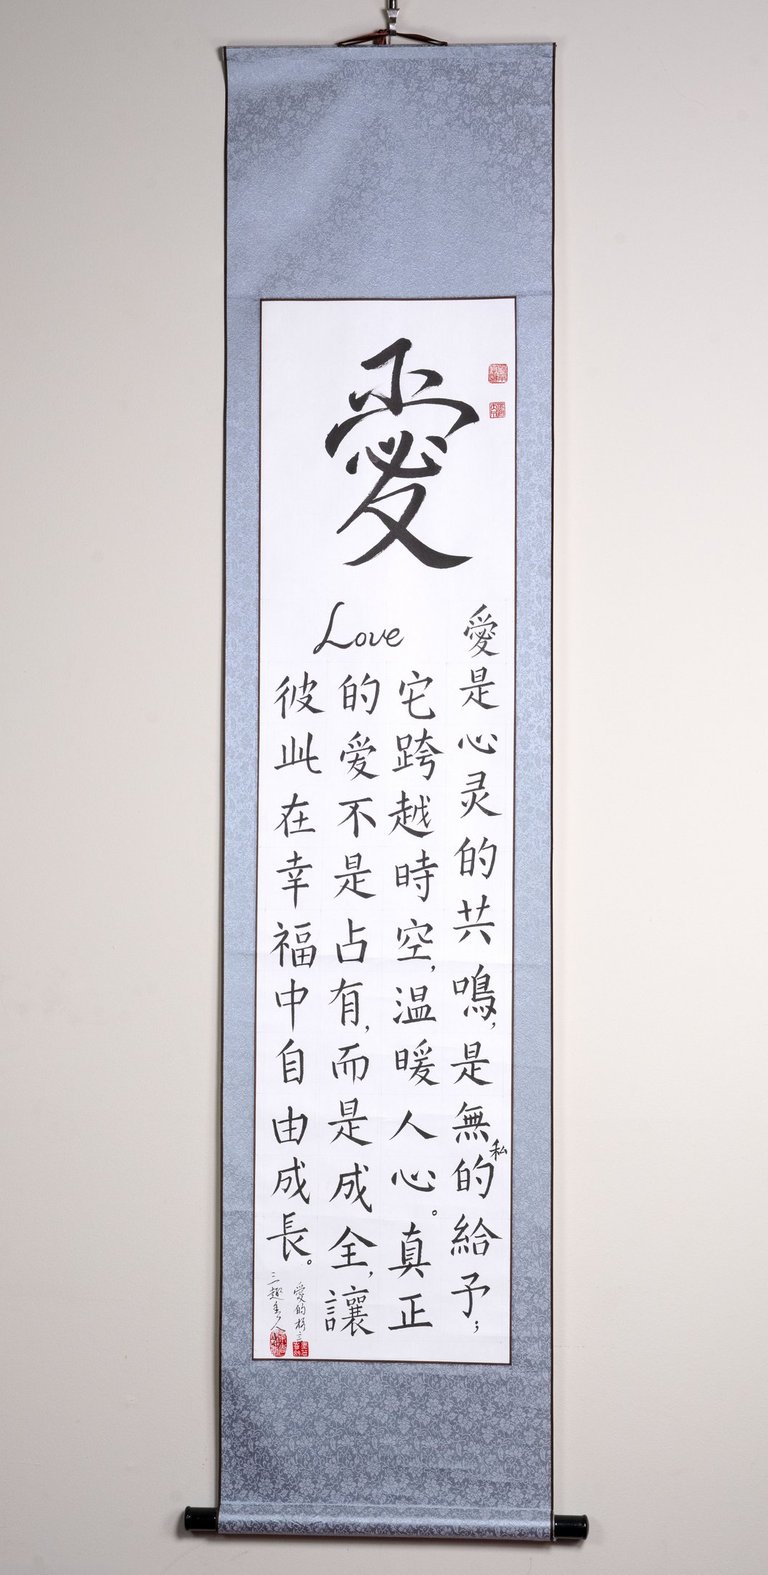 愛
Love
愛是心灵的共鳴,是無私的給予;
它跨越時空,温暖人心。真正
的爱不是占有,而是成全,讓
彼此在幸福中自由成長。
愛的格言